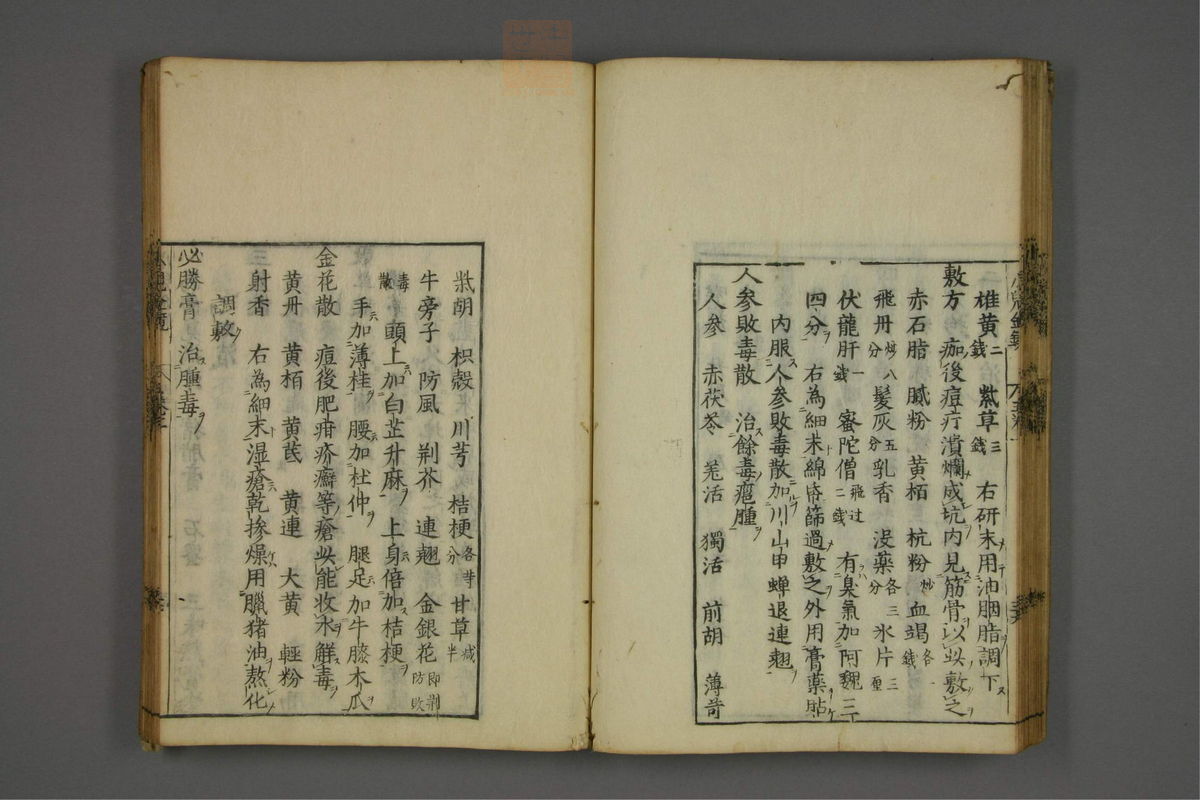 雄黄二錢 紫草三錢 右研末用油胭脂調下
敷方 痂後痘疔潰爛成坑内見筋骨以此敷之
赤石脂 膩粉 黄栢 杭粉炒 血竭各一錢
飛丹炒八分 髮灰五分 乳香 沒藥各三分 氷片三厘
伏龍肝一錢 蜜陀僧飛过二錢 有臭氣加阿魏三
四分 右為細末綿帋篩過敷之外用膏藥貼
内服人参敗毒散加川山甲蟬退連翹
人参敗毒散 治餘毒瘡腫
人参 赤茯苓 羗活 獨活 前胡 薄苛
柴胡 枳殼 川芎 桔梗各等分 甘草減半
牛旁子 防風 荆芥 連翹 金銀花即荆防敗
毒散 頭上加白芷升麻 上身倍加桔梗
手加薄桂 腰加杜仲 腿足加牛膝木瓜
金花散 痘後肥疳疥癬等瘡此能收水解毒
黄丹 黄栢 黄芪 黄連 大黄 輕粉
射香 右為細末湿瘡乾摻燥用臘猪油熬化
調敷
必勝膏 治腫毒